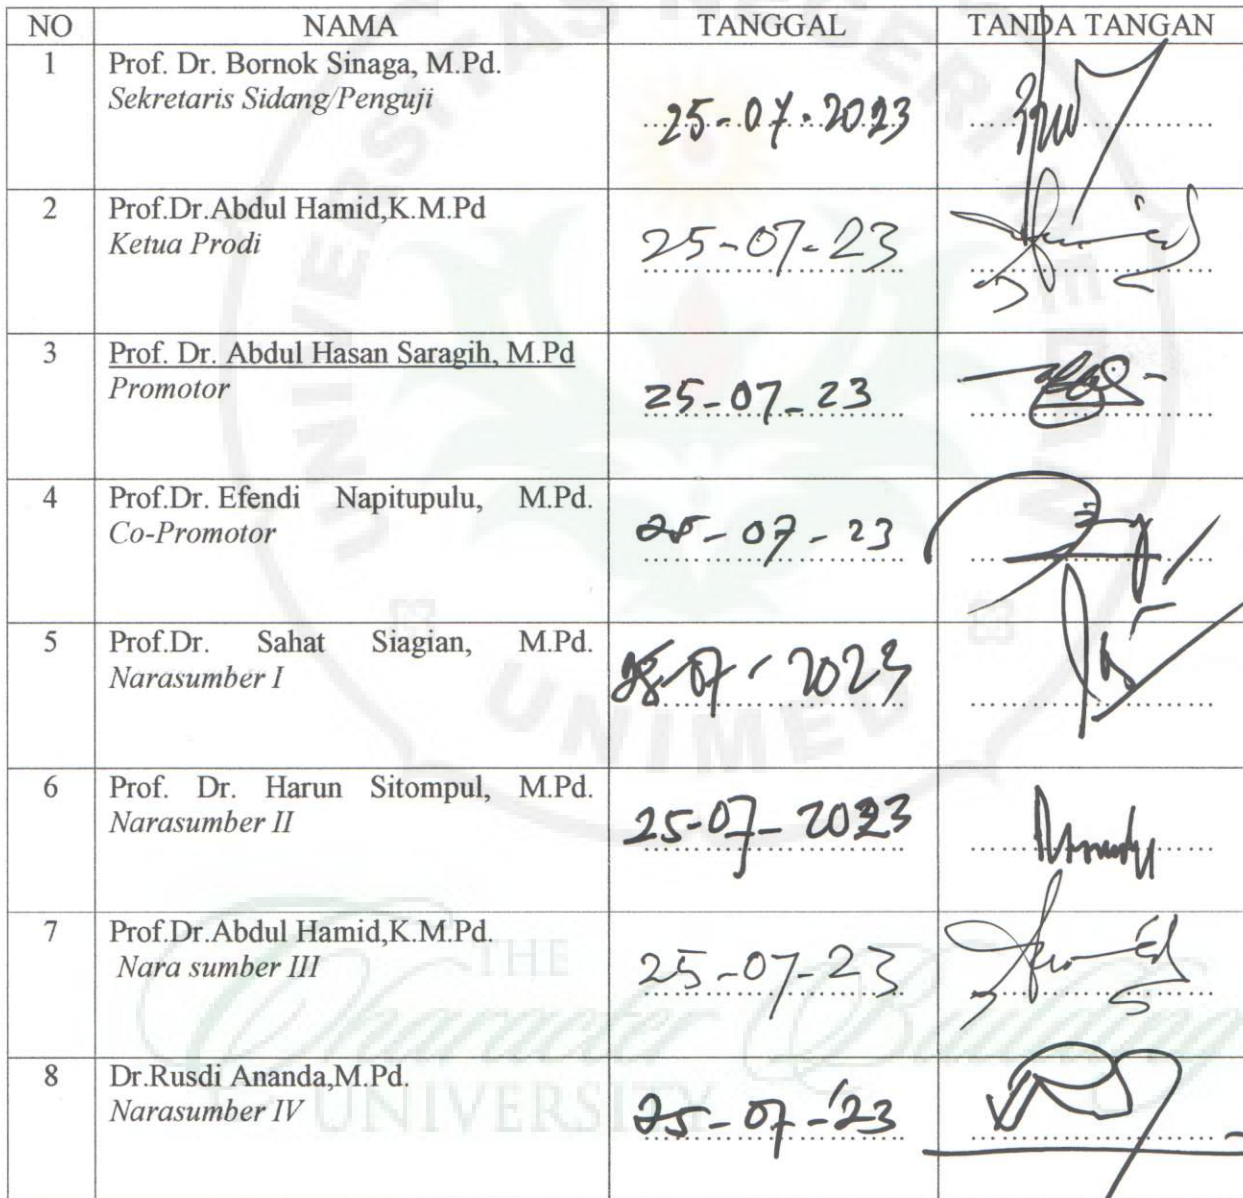 NO NAMA TANGGAL TANDA TANGAN
1 Prof. Dr. Bornok Sinaga, M.Pd.
Sekretaris Sidang/Penguji
25-07-2023
2 Prof.Dr.Abdul Hamid,K.M.Pd
Ketua Prodi
25-07-23
3 Prof. Dr. Abdul Hasan Saragih, M.Pd
Promotor
25-07-23
4 Prof.Dr. Efendi Napitupulu, M.Pd.
Co-Promotor
25-07-23
5 Prof.Dr. Sahat Siagian, M.Pd.
Narasumber I
07-2023
6 Prof. Dr. Harun Sitompul, M.Pd.
Narasumber II
25-07-2023
7 Prof.Dr.Abdul Hamid,K.M.Pd.
Nara sumber III
25-07-23
8 Dr.Rusdi Ananda,M.Pd.
Narasumber IV
25-07-'23
UNIVERSITAS NEGERI MEDAN
UNIMED
THE
Character Building
UNIVERSITY